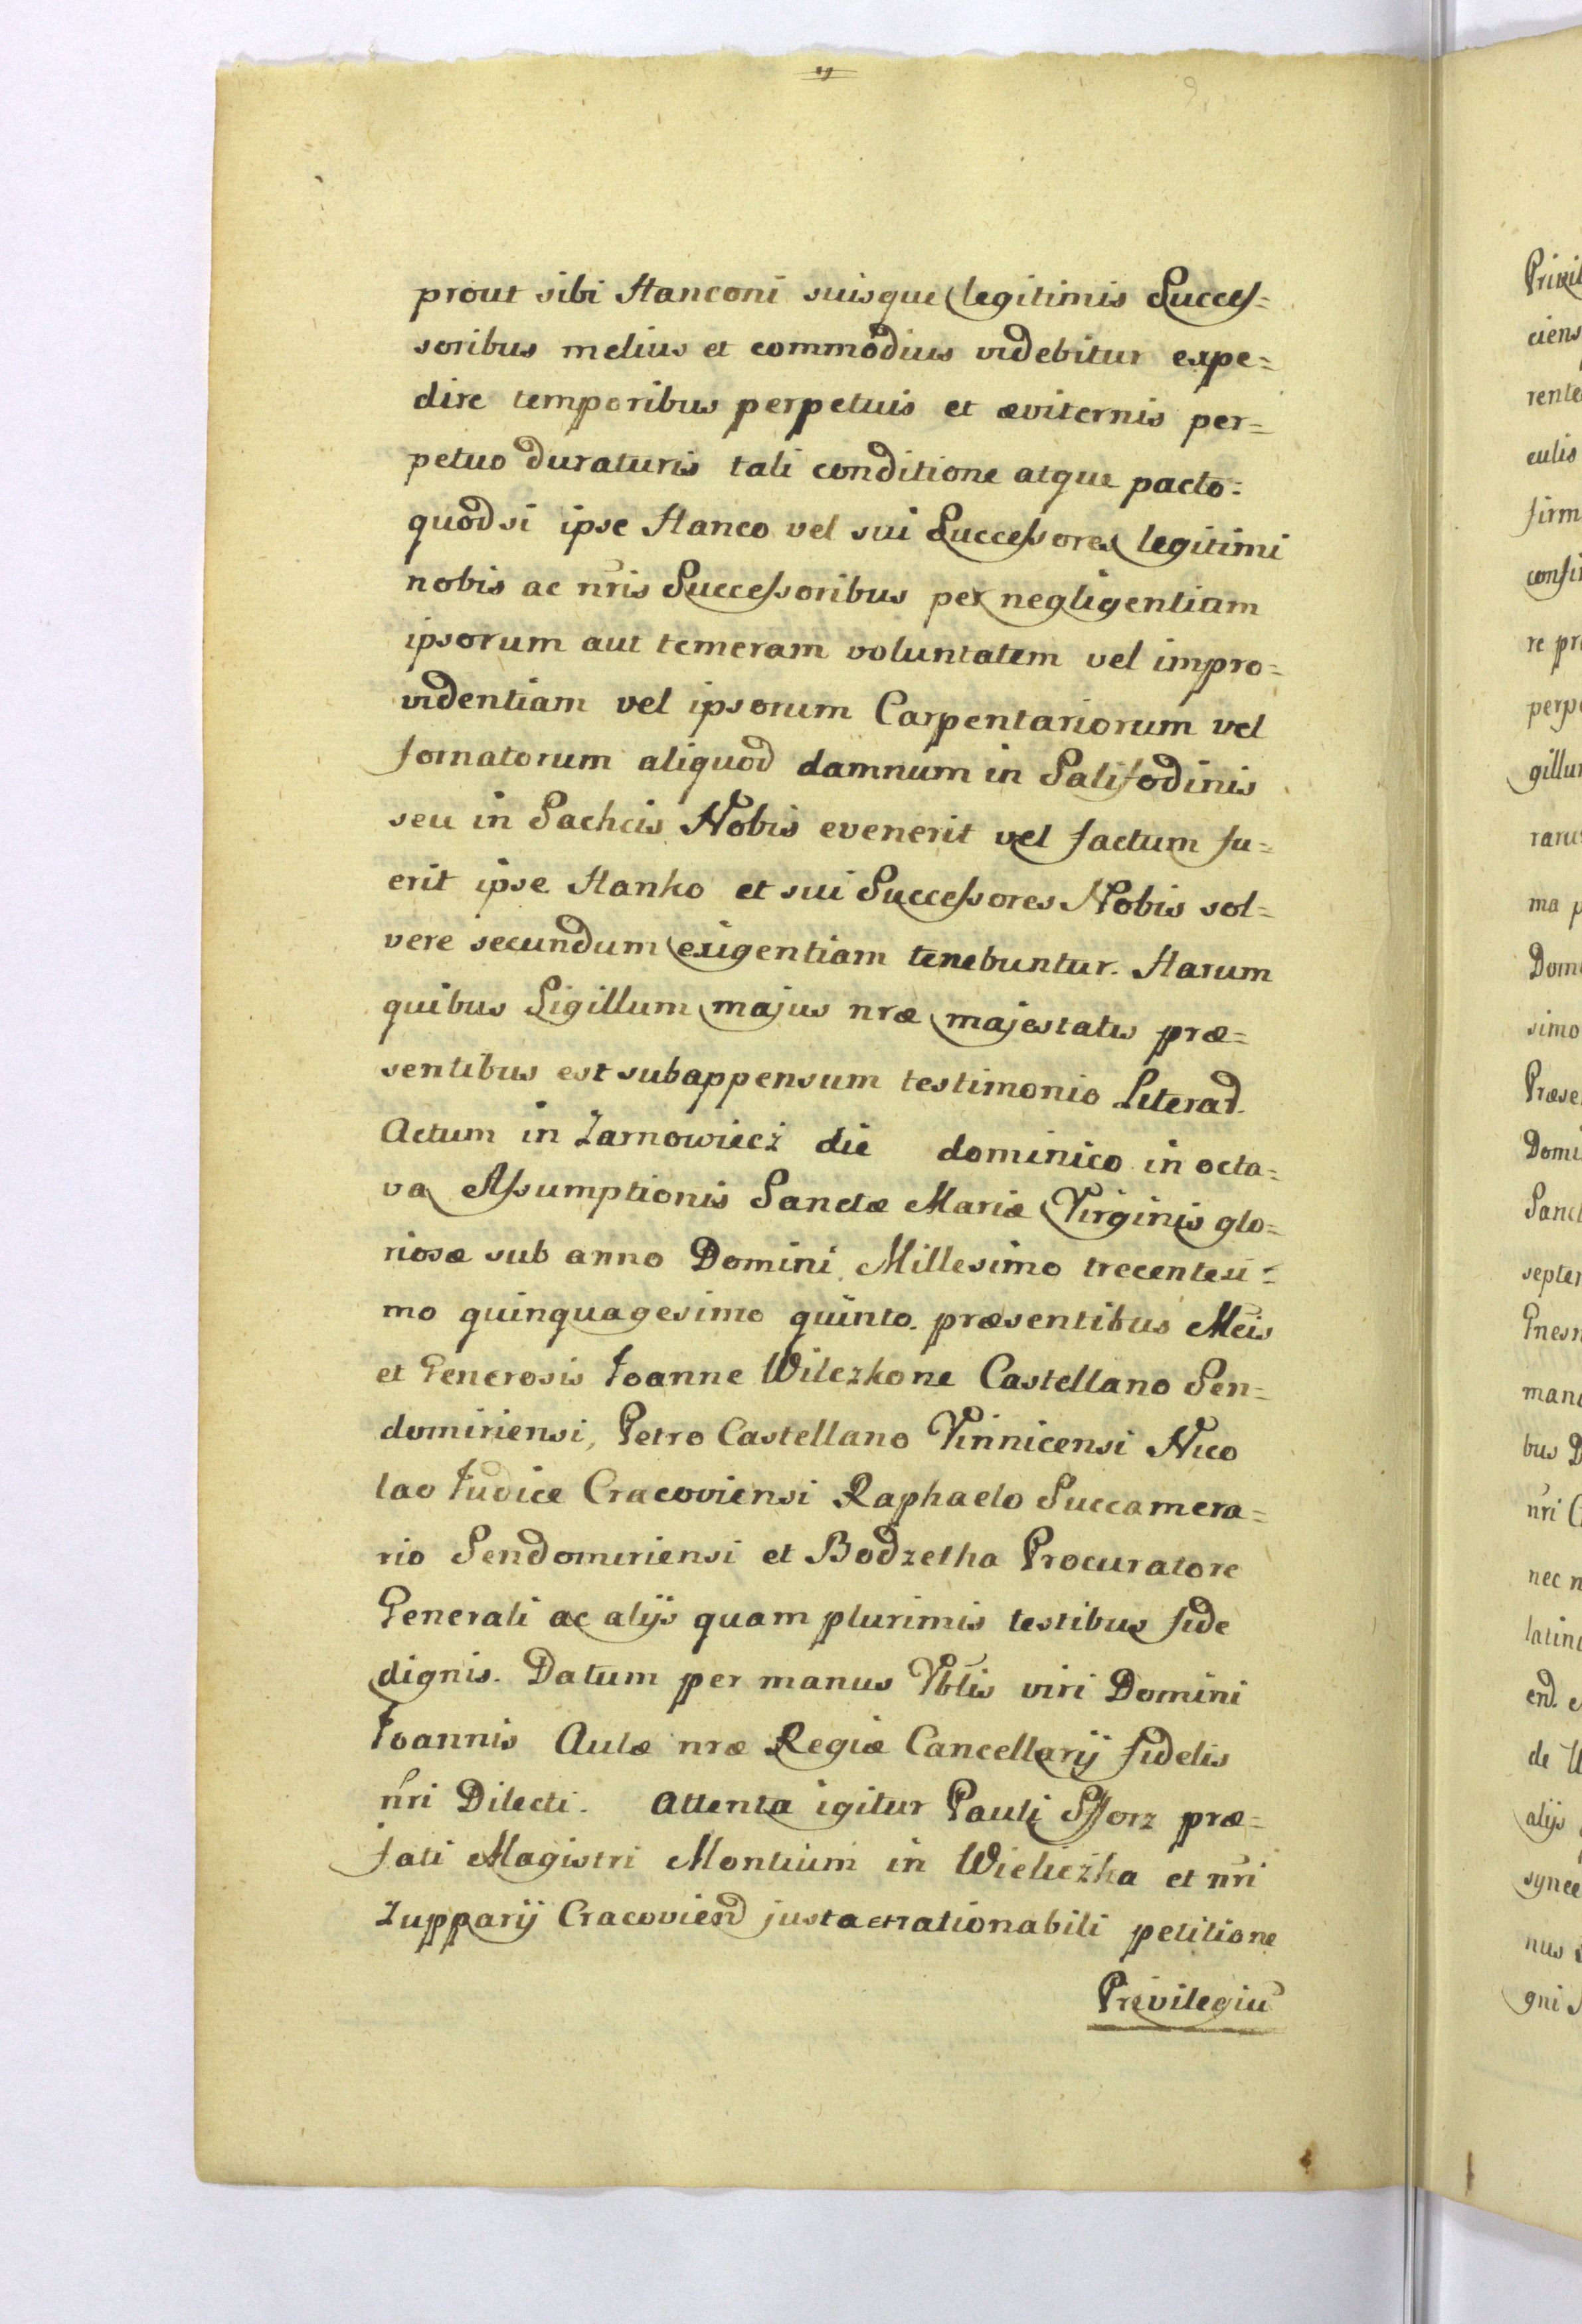 9
prout sibi Hanconi suisque legitimis Succes=
soribus melius et commodius videbitur expe=
dire temporibus perpetuis et æviternis per=
petuo duraturis tali conditione atque pacto:
quod si ipse Hanco vel sui Successores legitimi
nobis ac nris Successoribus per negligentiam
ipsorum aut temeram voluntatem vel impro=
videntiam vel ipsorum Carpentariorum vel
fornatorum aliquod damnum in Salifodinis
seu in Sachcis Nobis evenerit vel factum fu=
erit ipse Hanko et sui Successores Nobis sol=
vere secundum exigentiam tenebuntur. Harum
quibus Sigillum majus nræ majestatis præ=
sentibus est subappensum testimonio Literad.
Actum in Żarnowiecż die dominico in octa=
va Assumptionis Sanctæ Mariæ Virginis glo=
riosæ sub anno Domini Millesimo trecentesi=
mo quinquagesimo quinto. præsentibus Meis
et Generosis Joanne Wilczkone Castellano Sen=
domiriensi, Petro Castellano Vinnicensi Nico
lao Judice Cracoviensi Raphaelo Succamera=
rio Sendomiriensi et Bodzetha Procuratore
Generali ac alijs quam plurimis testibus fide
dignis. Datum per manus Vblis viri Domini
Joannis Aulæ nræ Regiæ Cancellarij fidelis
nri Dilecti. Attenta igitur Pauli Sfforz præ=
fati Magistri Montium in Wieliczka et nri
Zupparij Cracoviend justa et rationabili petitione
Privilegiu
ciens
rente
culis
firm
re pr
perp
gillu
raru
ma p
Domi
simo
Præse
Domi
Sanct
septe
Gnesn
mane
bus D
nri C
nec n
latini
end. e
alijs
synce
nus
gni S